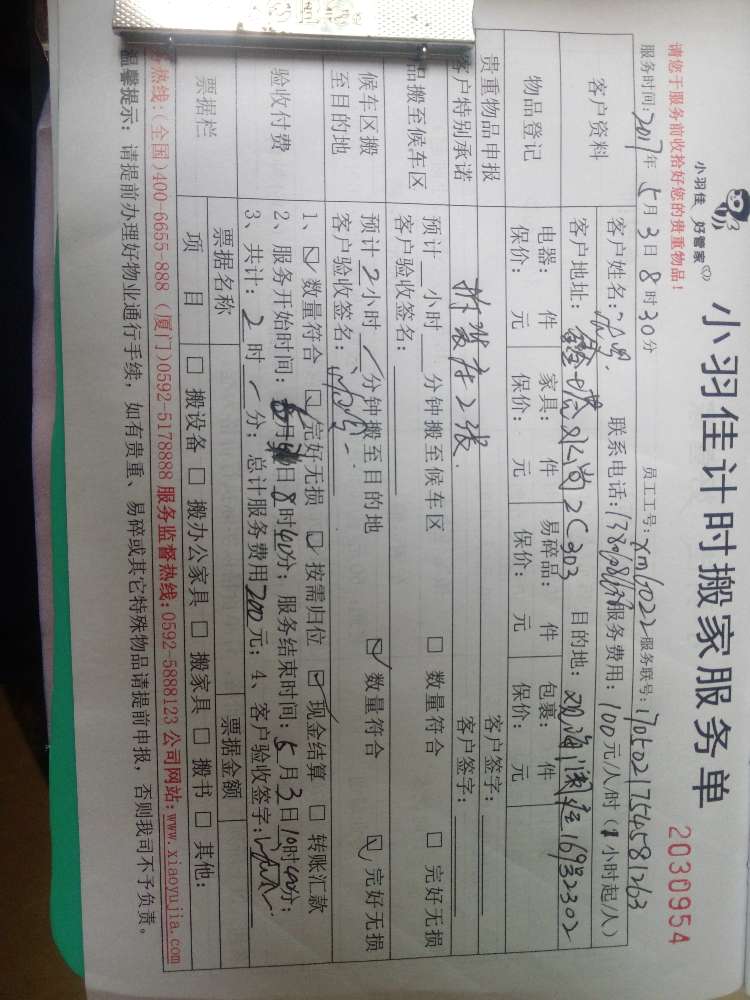 小羽佳 好管家
小羽佳计时搬家服务单
2030954
请您于服务前收拾好您的贵重物品!
服务时间:2017年5月3日8时30分 员工工号:xm6022 服务联号:
客户资料 客户姓名: 联系电话: 服务费用:100元/人/时(1小时起/人)
客户地址: 2C303 目的地: 169号2302
物品登记 电器: 件 家具: 件 易碎品: 件 包裹: 件
保价: 元 保价: 元 保价: 元 保价: 元
贵重物品申报 客户签字:
客户特别承诺 拆装床2张. 客户签字:
品搬至候车区 预计 小时 分钟搬至候车区 □ 数量符合 □ 完好无损
客户验收签名:
候车区搬至目的地 预计2小时 分钟搬至目的地 ☑ 数量符合 ☑ 完好无损
客户验收签名:
验收付费 1、☑ 数量符合 ☑ 完好无损 ☑ 按需归位 ☑ 现金结算 □ 转账汇款
2、服务开始时间: 月 日8时40分;服务结束时间:5月3日10时40分;
3、共计:2时 分;总计服务费用200元;4、客户验收签字:
票据栏 票据名称 票据金额
项目 □ 搬设备 □ 搬办公家具 □ 搬家具 □ 搬书 □ 其他:
热线:(全国)400-6655-888 (厦门)0592-5178888 服务监督热线:0592-5888123 公司网站:www.xiaoyujia.com
温馨提示:请提前办理好物业通行手续,如有贵重、易碎或其它特殊物品请提前申报,否则我司不予负责。